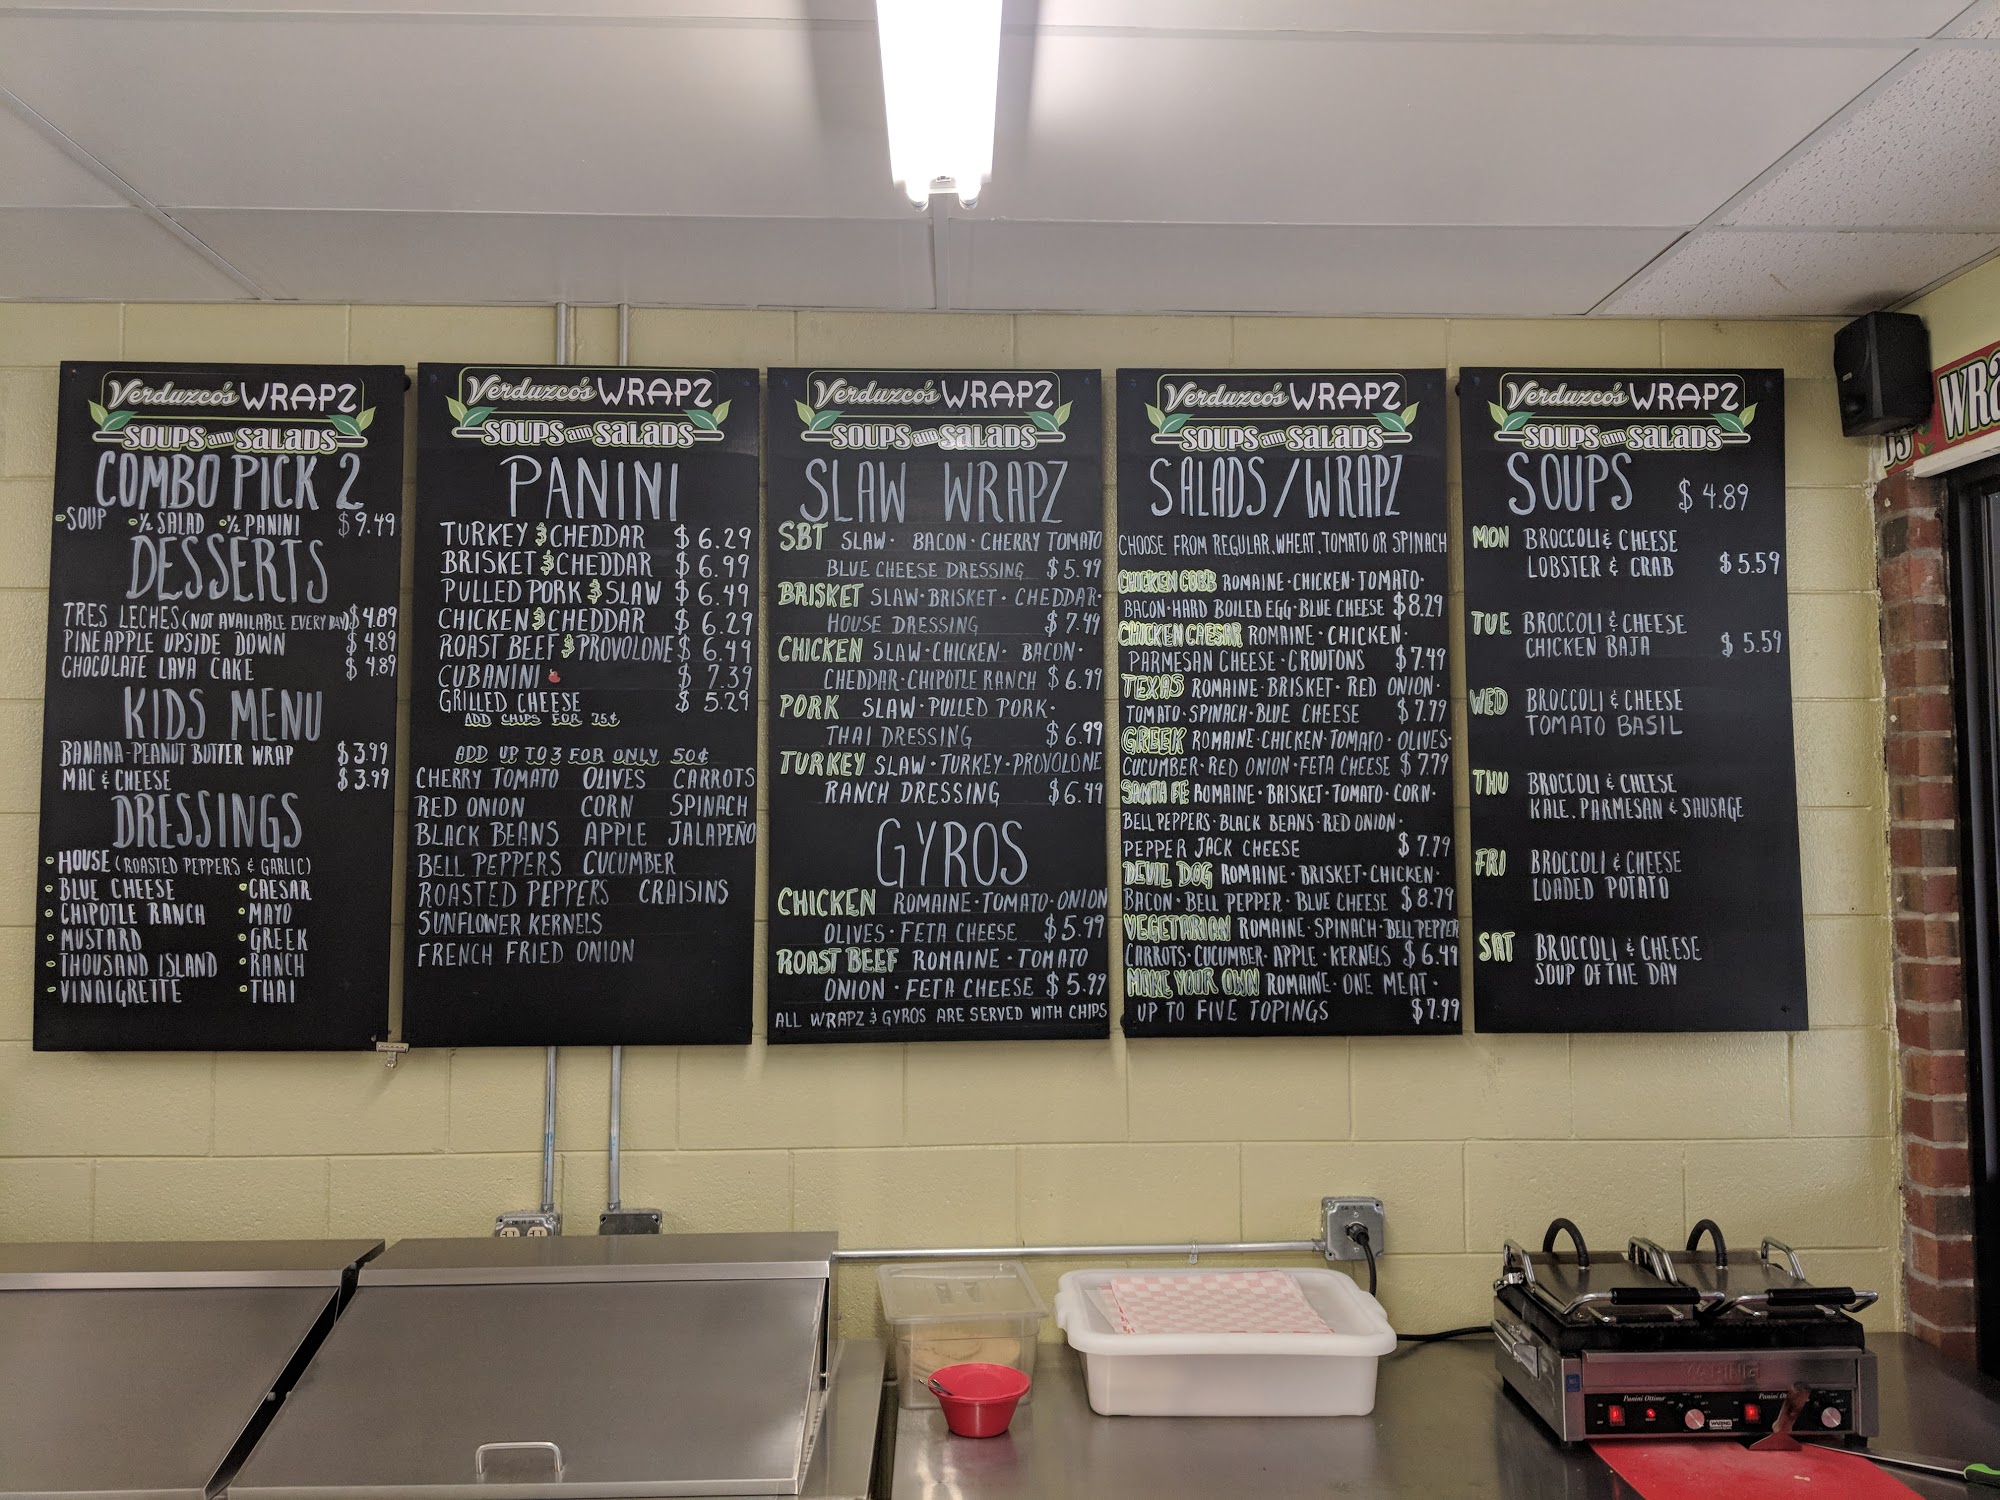 Verduzco's WRAPZ
SOUPS and SALADS
COMBO PICK 2
SOUP ½ SALAD ½ PANINI $9.49
DESSERTS
TRES LECHES (NOT AVAILABLE EVERY DAY) $4.89
PINEAPPLE UPSIDE DOWN $4.89
CHOCOLATE LAVA CAKE $4.89
KIDS MENU
BANANA-PEANUT BUTTER WRAP $3.99
MAC & CHEESE $3.99
DRESSINGS
HOUSE (ROASTED PEPPERS & GARLIC)
BLUE CHEESE CAESAR
CHIPOTLE RANCH MAYO
MUSTARD GREEK
THOUSAND ISLAND RANCH
VINAIGRETTE THAI
Verduzco's WRAPZ
SOUPS and SALADS
PANINI
TURKEY & CHEDDAR $6.29
BRISKET & CHEDDAR $6.99
PULLED PORK & SLAW $6.49
CHICKEN & CHEDDAR $6.29
ROAST BEEF & PROVOLONE $6.49
CUBANINI $7.39
GRILLED CHEESE $5.29
ADD CHIPS FOR 75¢
ADD UP TO 3 FOR ONLY 50¢
CHERRY TOMATO OLIVES CARROTS
RED ONION CORN SPINACH
BLACK BEANS APPLE JALAPEÑO
BELL PEPPERS CUCUMBER
ROASTED PEPPERS CRAISINS
SUNFLOWER KERNELS
FRENCH FRIED ONION
Verduzco's WRAPZ
SOUPS and SALADS
SLAW WRAPZ
SBT SLAW · BACON · CHERRY TOMATO
BLUE CHEESE DRESSING $5.99
BRISKET SLAW · BRISKET · CHEDDAR ·
HOUSE DRESSING $7.49
CHICKEN SLAW · CHICKEN · BACON ·
CHEDDAR · CHIPOTLE RANCH $6.99
PORK SLAW · PULLED PORK ·
THAI DRESSING $6.99
TURKEY SLAW · TURKEY · PROVOLONE
RANCH DRESSING $6.49
GYROS
CHICKEN ROMAINE · TOMATO · ONION
OLIVES · FETA CHEESE $5.99
ROAST BEEF ROMAINE · TOMATO
ONION · FETA CHEESE $5.99
ALL WRAPZ & GYROS ARE SERVED WITH CHIPS
Verduzco's WRAPZ
SOUPS and SALADS
SALADS/WRAPZ
CHOOSE FROM REGULAR, WHEAT, TOMATO OR SPINACH
CHICKEN COBB ROMAINE · CHICKEN · TOMATO ·
BACON · HARD BOILED EGG · BLUE CHEESE $8.29
CHICKEN CAESAR ROMAINE · CHICKEN ·
PARMESAN CHEESE · CROUTONS $7.49
TEXAS ROMAINE · BRISKET · RED ONION ·
TOMATO · SPINACH · BLUE CHEESE $7.79
GREEK ROMAINE · CHICKEN · TOMATO · OLIVES ·
CUCUMBER · RED ONION · FETA CHEESE $7.79
SANTA FE ROMAINE · BRISKET · TOMATO · CORN ·
BELL PEPPERS · BLACK BEANS · RED ONION ·
PEPPER JACK CHEESE $7.79
DEVIL DOG ROMAINE · BRISKET · CHICKEN ·
BACON · BELL PEPPER · BLUE CHEESE $8.79
VEGETARIAN ROMAINE · SPINACH · BELL PEPPER
CARROTS · CUCUMBER · APPLE · KERNELS $6.49
MAKE YOUR OWN ROMAINE · ONE MEAT ·
UP TO FIVE TOPINGS $7.99
Verduzco's WRAPZ
SOUPS and SALADS
SOUPS $4.89
MON BROCCOLI & CHEESE
LOBSTER & CRAB $5.59
TUE BROCCOLI & CHEESE
CHICKEN BAJA $5.59
WED BROCCOLI & CHEESE
TOMATO BASIL
THU BROCCOLI & CHEESE
KALE, PARMESAN & SAUSAGE
FRI BROCCOLI & CHEESE
LOADED POTATO
SAT BROCCOLI & CHEESE
SOUP OF THE DAY
WARING
Panini Ottimo
WARING